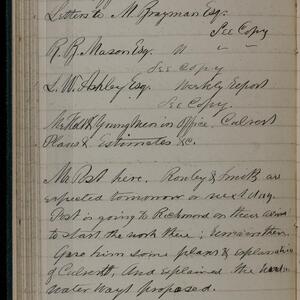 Letters to M. Brayman Esq.
See Copy
R. B. Mason Esq. " " "
See Copy
L. W. Ashley Esq. Weekly Report
See Copy.
& Young men in Office. Culvert
Plans & Estimates &c.
Mr Post here. Ronley & Smith are
expected tomorrow or next day.
Post is going to Richmond on their
to start the work there;
Gave him some plans & explanations
of Culverts, and explained the
water ways proposed.